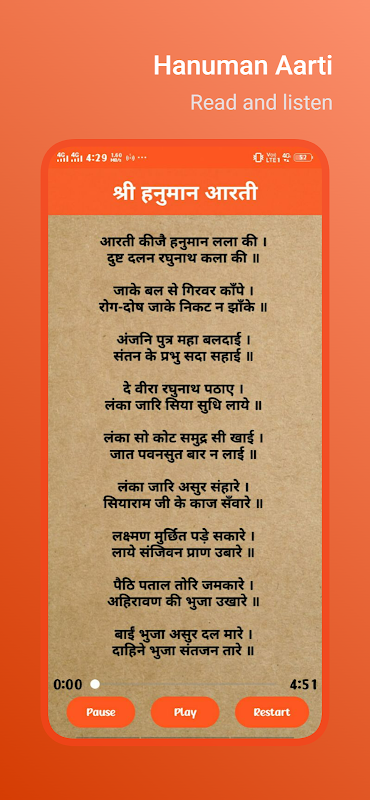 Hanuman Aarti
Read and listen
4:29
श्री हनुमान आरती
आरती कीजै हनुमान लला की ।
दुष्ट दलन रघुनाथ कला की ॥
जाके बल से गिरवर काँपे ।
रोग-दोष जाके निकट न झाँके ॥
अंजनि पुत्र महा बलदाई ।
संतन के प्रभु सदा सहाई ॥
दे वीरा रघुनाथ पठाए ।
लंका जारि सिया सुधि लाये ॥
लंका सो कोट समुद्र सी खाई ।
जात पवनसुत बार न लाई ॥
लंका जारि असुर संहारे ।
सियाराम जी के काज सँवारे ॥
लक्ष्मण मुर्छित पड़े सकारे ।
लाये संजिवन प्राण उबारे ॥
पैठि पताल तोरि जमकारे ।
अहिरावण की भुजा उखारे ॥
बाईं भुजा असुर दल मारे ।
दाहिने भुजा संतजन तारे ॥
0:00 4:51
Pause Play Restart